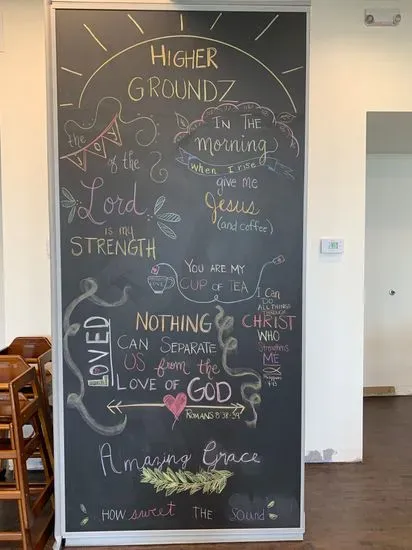 HIGHER
GROUNDZ
the Joy
of the
Lord
is my
STRENGTH
IN THE
morning
when I rise
give me
Jesus
(and coffee)
YOU ARE MY
CUP OF TEA
I CAN
DO
ALL THINGS
THROUGH
CHRIST
WHO
Strengthens
ME
Philippians
4:13
LOVED
NOTHING
CAN SEPARATE
US from the
LOVE OF GOD
ROMANS 8:38-39
Amazing Grace
HOW sweet THE Sound